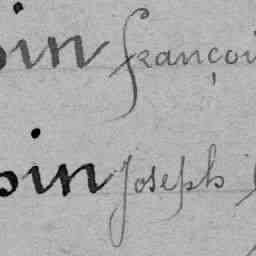 in françoi
in Joseph